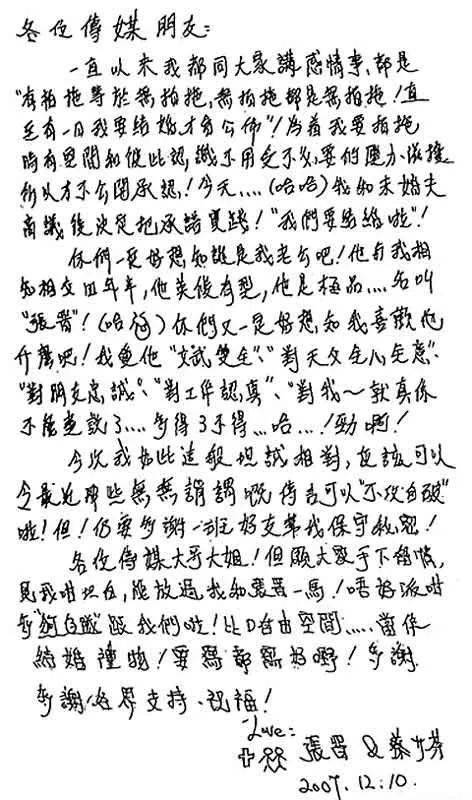 各位傳媒朋友：
一直以來我都同大家講感情事，都是
"有拍拖等於無拍拖，無拍拖都是無拍拖！直
至有一日我要結婚，才會公佈"！為著我要拍拖
時有空間和彼此認識不用受不必要的壓力依據
所以才不公開承認！今天....（哈哈）我和未婚夫
商議後決定把承諾實踐！"我們要結婚啦"！
你們一定好想知誰是我老公吧！他與我相
知相交四年半，他英俊有型，他是極品....名叫
"張晋"！（哈哈）你們又一定好想知我喜歡他
什麼吧！我愛他"文武雙全"、"對天父全心全意"、
"對朋友忠誠"、"對工作認真"、"對我～就真係
不能盡說了....多得3不得...哈...！勁啊！
今次我如此這般坦誠相對，應該可以
令最近那些無無謂謂嘅傳言可以"不攻自破"
啦！但！仍要多謝一班好友幫我保守秘密！
各位傳媒大哥大姐！但願大家手下留情，
見我咁坦白，能放過我和張晋一馬！唔好派咁
多"狗仔隊"跟我們啦！比D自由空間.....當係
結婚禮物！要寫都寫好嘢！多謝
多謝各界支持、祝福！
Love：
張晋 & 蔡少芬
2007.12.10.